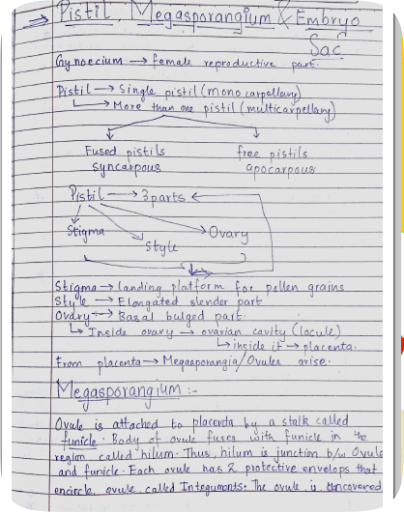 ⇒ Pistil, Megasporangium & Embryo
Sac
Gynoecium → female reproductive part.
Pistil → Single pistil (mono carpellary)
↳ More than one pistil (multicarpellary)
Fused pistils free pistils
syncarpous apocarpous
Pistil → 3 parts ←
Stigma Style Ovary
Stigma → landing platform for pollen grains
Style → Elongated slender part
Ovary → Basal bulged part.
↳ Inside ovary → ovarian cavity (locule)
↳ inside it → placenta.
From placenta → Megasporangia/Ovules arise.
Megasporangium :-
Ovule is attached to placenta by a stalk called
funicle. Body of ovule fuses with funicle in the
region called hilum. Thus, hilum is junction b/w Ovule
and funicle. Each ovule has 2 protective envelops that
encircle ovule called Integuments. The ovule is Uncovered